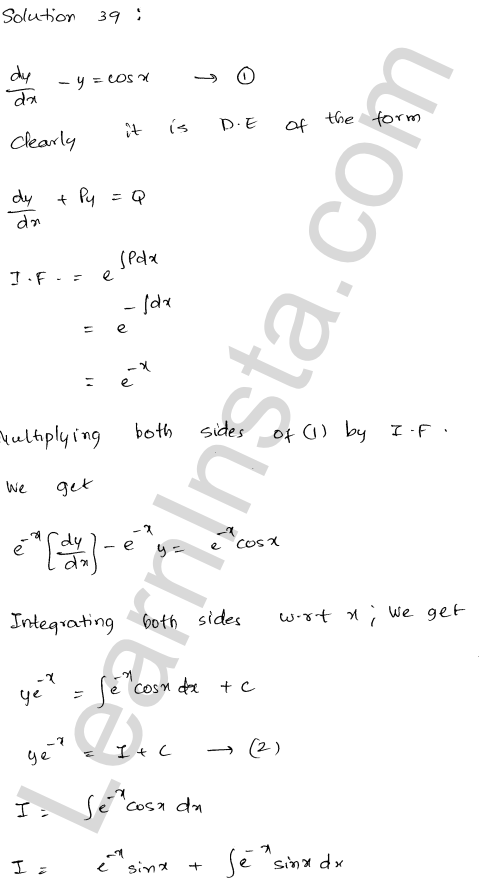 Solution 39 :
dy/dx - y = cos x → ①
Clearly it is D.E of the form
dy/dx + Py = Q
I.F. = e^∫Pdx
= e^-∫dx
= e^-x
Multiplying both sides of (1) by I.F.
We get
e^-x [dy/dx] - e^-x y = e^-x cos x
Integrating both sides w.r.t x ; we get
ye^-x = ∫e^-x cos x dx + C
ye^-x = I + C → (2)
I = ∫e^-x cos x dx
I = e^-x sin x + ∫e^-x sin x dx
LearnInsta.com